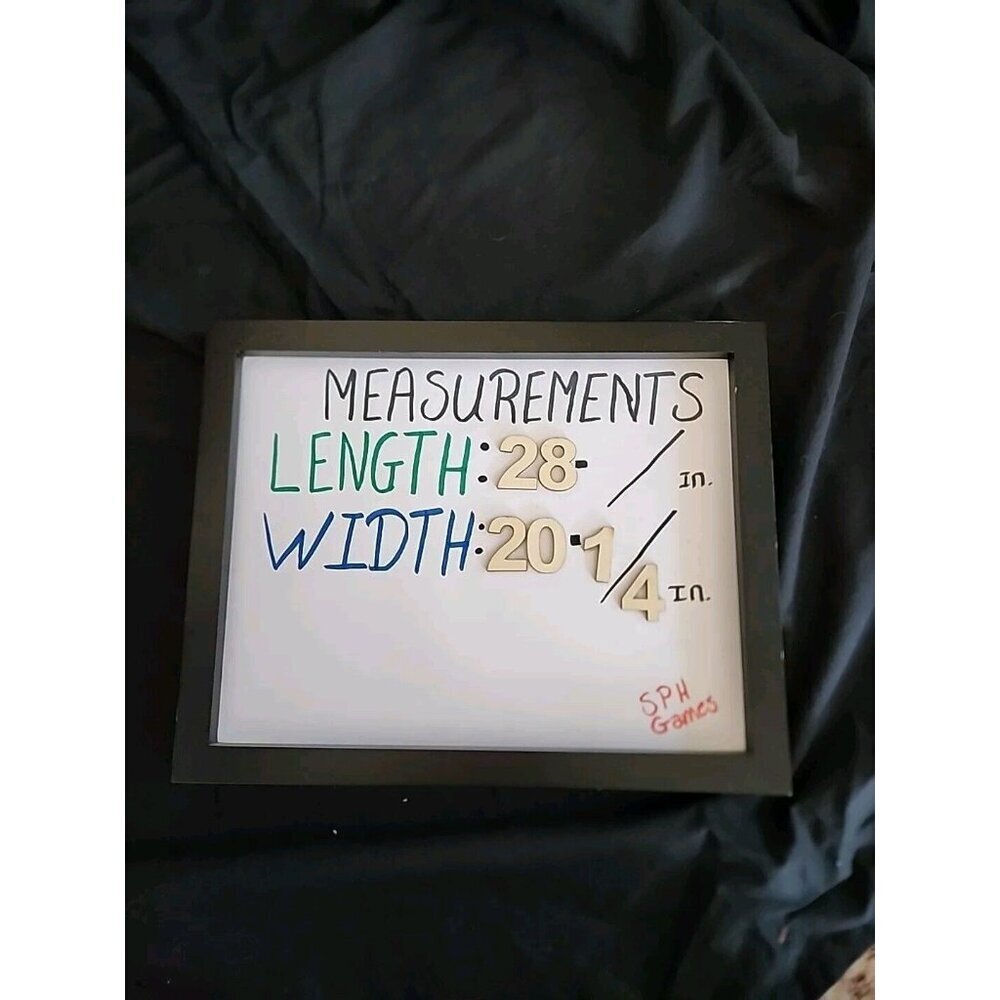 MEASUREMENTS
LENGTH: 28- / In.
WIDTH: 20-1/4 In.
SPH
Games